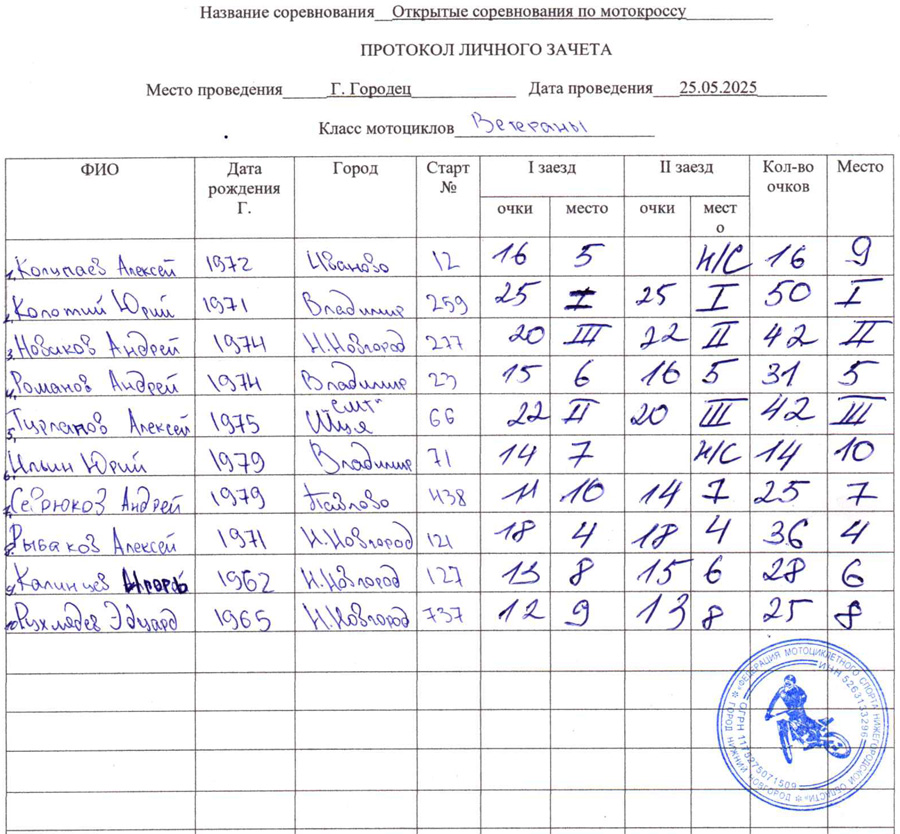 Название соревнования Открытые соревнования по мотокроссу
ПРОТОКОЛ ЛИЧНОГО ЗАЧЕТА
Место проведения Г. Городец Дата проведения 25.05.2025
Класс мотоциклов Ветераны
ФИО Дата рождения Г. Город Старт № I заезд II заезд Кол-во очков Место
очки место очки место
1. Колупаев Алексей 1972 Иваново 12 16 5 Н/С 16 9
2. Колотий Юрий 1971 Владимир 259 25 I 25 I 50 I
3. Новиков Андрей 1974 Н.Новгород 277 20 III 22 II 42 II
4. Романов Андрей 1974 Владимир 23 15 6 16 5 31 5
5. Алексей 1975 66 22 II 20 III 42 III
6. Ильин Юрий 1979 Владимир 71 14 7 Н/С 14 10
7. Севрюков Андрей 1979 Павлово 438 11 10 14 7 25 7
8. Рыбаков Алексей 1971 Н.Новгород 121 18 4 18 4 36 4
9. Калинцев Игорь 1962 Н.Новгород 127 13 8 15 6 28 6
10. Рухлядев Эдуард 1965 Н.Новгород 737 12 9 13 8 25 8
ФЕДЕРАЦИЯ МОТОЦИКЛЕТНОГО СПОРТА НИЖЕГОРОДСКОЙ ОБЛАСТИ
ГОРОД НИЖНИЙ НОВГОРОД
ИНН 5263133296
ОГРН 1175275071509